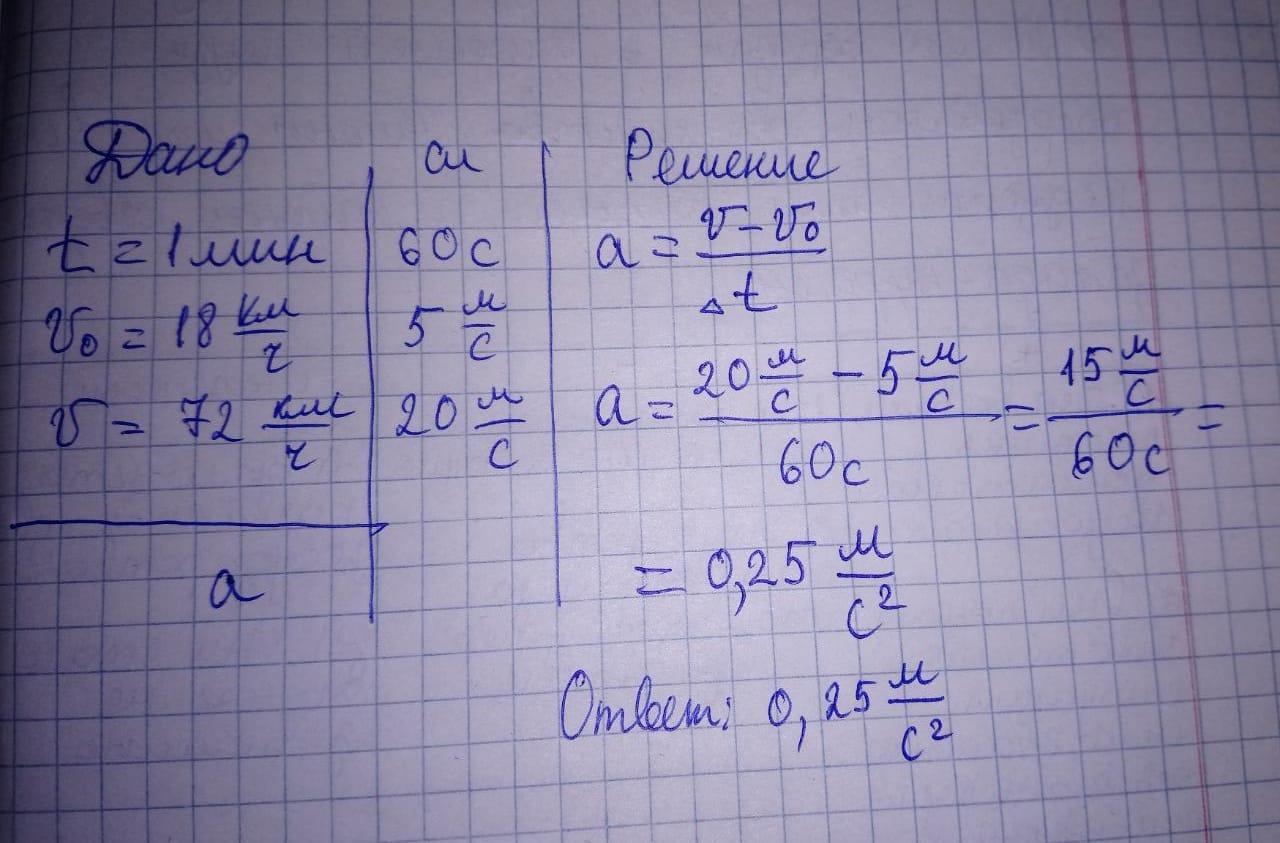 Дано си Решение
t = 1 мин 60 с a = v - v₀ / Δt
v₀ = 18 км/ч 5 м/с
v = 72 км/ч 20 м/с a = 20 м/с - 5 м/с / 60 с = 15 м/с / 60 с =
a = 0,25 м/с²
Ответ: 0,25 м/с²